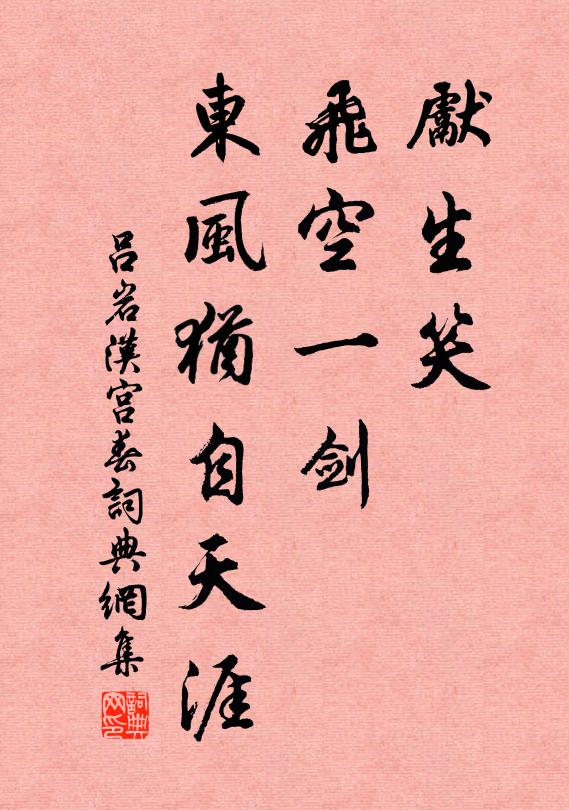 獻生笑
飛空一劍
東風猶自天涯
呂岩漢宮春詞典網集
詞典
网印